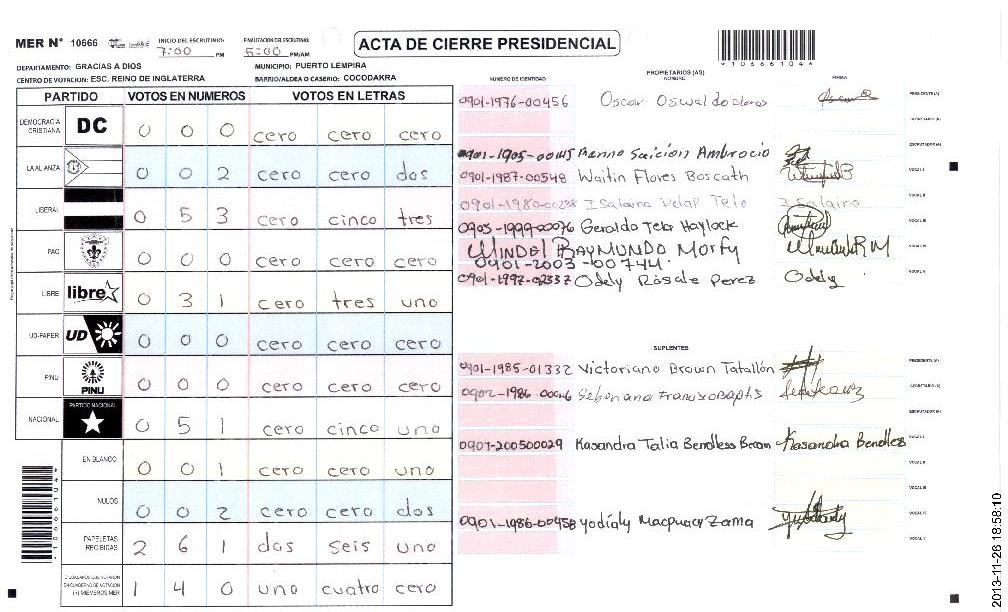 MER N° 10666 INICIO DEL ESCRUTINIO: 7:00 PM FINALIZACION DEL ESCRUTINIO: 5:00 PM/AM
ACTA DE CIERRE PRESIDENCIAL
*10666104*
DEPARTAMENTO: GRACIAS A DIOS MUNICIPIO: PUERTO LEMPIRA
CENTRO DE VOTACION: ESC. REINO DE INGLATERRA BARRIO/ALDEA O CASERIO: COCODAKRA
PARTIDO VOTOS EN NUMEROS VOTOS EN LETRAS
DEMOCRACIA CRISTIANA DC 0 0 0 cero cero cero
LA ALIANZA 0 0 2 cero cero dos
LIBERAL 0 5 3 cero cinco tres
PAC 0 0 0 cero cero cero
LIBRE libre 0 3 1 cero tres uno
UD-FAPER UD 0 0 0 cero cero cero
PINU PINU 0 0 0 cero cero cero
NACIONAL PARTIDO NACIONAL 0 5 1 cero cinco uno
EN BLANCO 0 0 1 cero cero uno
NULOS 0 0 2 cero cero dos
PAPELETAS RECIBIDAS 2 6 1 dos seis uno
CIUDADANOS QUE VOTARON EN CUADERNO DE VOTACION (+) MIEMBROS MER 1 4 0 uno cuatro cero
*10666104*
PROPIETARIOS (AS)
NUMERO DE IDENTIDAD NOMBRE FIRMA
0901-1976-00456 Oscar Oswaldo PRESIDENTE (A)
SECRETARIO (A)
ESCRUTADOR (A)
Ambrocio
0901-1987-00548 Waitin Flores Boscath VOCAL I
VOCAL II
0901-1980-00288 Isalaira Telo
VOCAL III
0905-1999-00076 Geraldo Haylock
WINDEL RAYMUNDO Morfy VOCAL IV
0901-2003-00744
0901-1997-02337 Odely Rosale Perez Odely VOCAL V
SUPLENTES
0901-1985-01332 Victoriano Brown Tatallón PRESIDENTE (A)
0902-1986-00046 SECRETARIO (A)
ESCRUTADOR (A)
0901-200500029 Kasandra Talia Bendless Kasandra Bendles VOCAL I
VOCAL II
VOCAL III
0901-1986-00458 Zama VOCAL IV
VOCAL V
2013-11-26 18:58:10